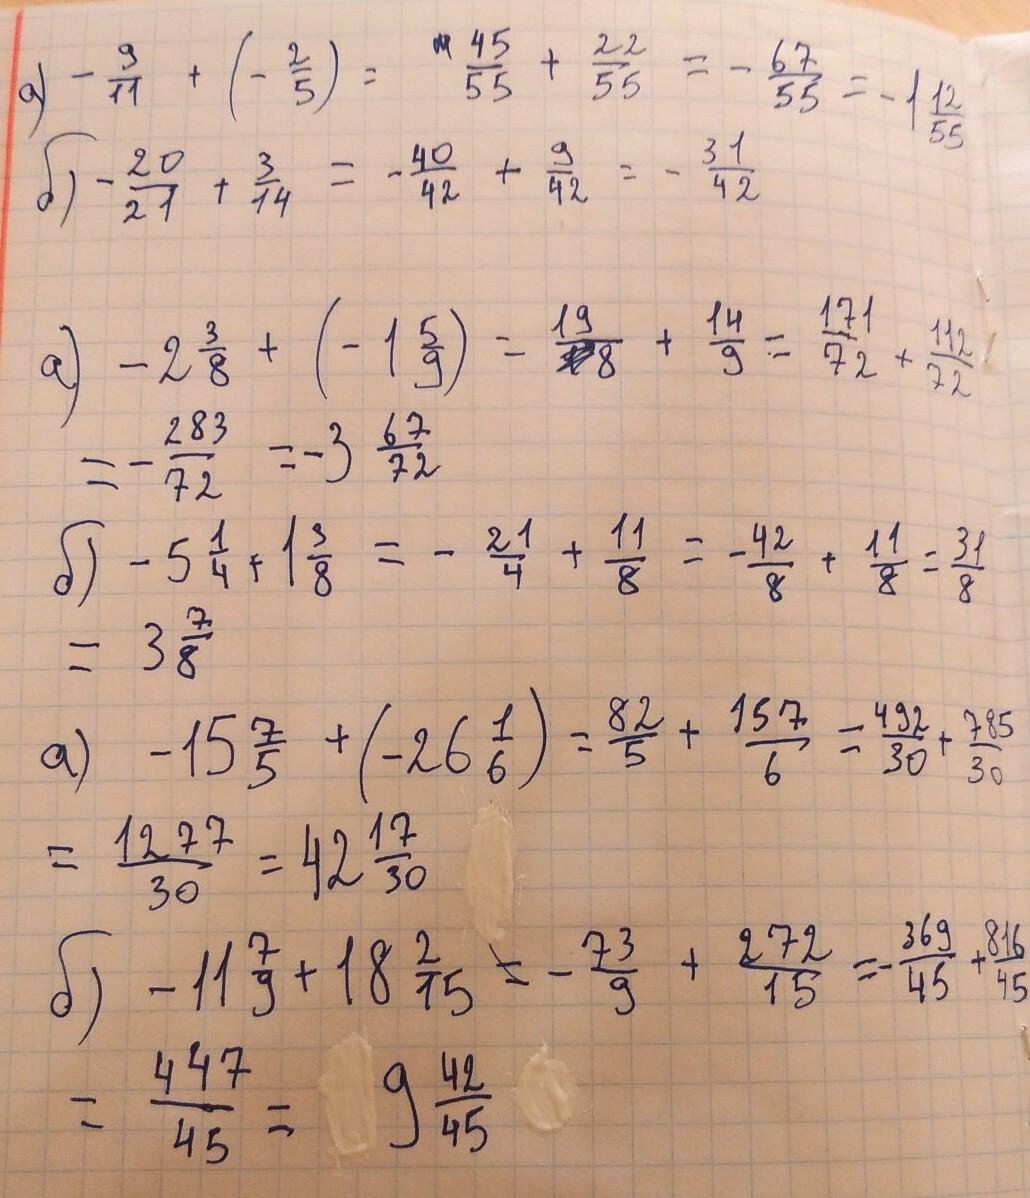 а) - 9/11 + (- 2/5) = - 45/55 + 22/55 = - 67/55 = - 1 12/55
б) - 20/21 + 3/14 = - 40/42 + 9/42 = - 31/42
а) - 2 3/8 + (- 1 5/9) = 19/8 + 14/9 = 171/72 + 112/72
= - 283/72 = - 3 67/72
б) - 5 1/4 + 1 3/8 = - 21/4 + 11/8 = - 42/8 + 11/8 = 31/8
= 3 7/8
а) - 15 7/5 + (- 26 1/6) = 82/5 + 157/6 = 492/30 + 785/30
= 1277/30 = 42 17/30
б) - 11 7/9 + 18 2/15 = - 73/9 + 272/15 = - 369/45 + 816/45
= 447/45 = 9 42/45